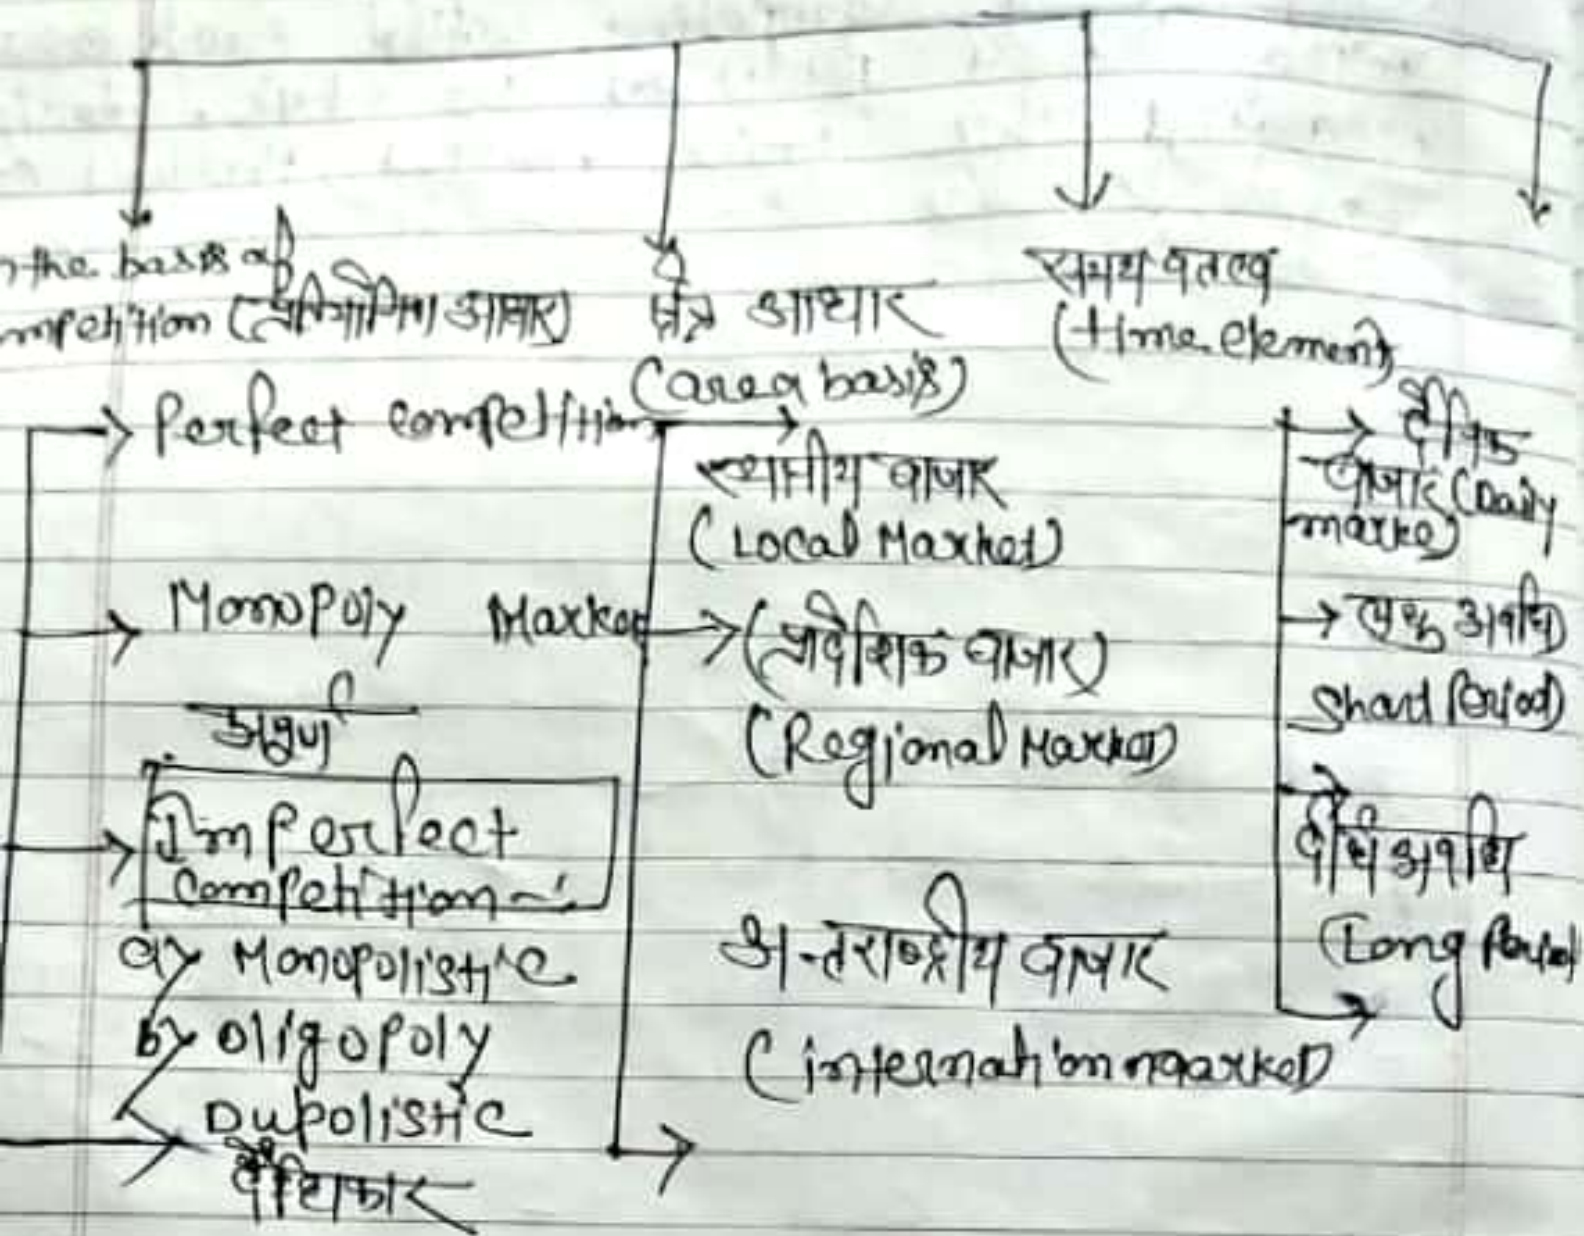 the basis of
mpetition (प्रतियोगिता आधार)
Perfect competition
Monopoly Market
अपुर्ण
Imperfect
Competition
a) Monopolistic
b) Oligopoly
Dupolistic
क्षेत्र आधार
(area basis)
स्थानीय बाजार
(Local Market)
(प्रादेशिक बाजार)
(Regional Market)
अन्तराष्ट्रीय बाजार
(internation market)
समय
(time element)
दैनिक
बाजार (Daily
marke)
अवधि)
Short Period)
दीर्घ अवधि
(Long Period)